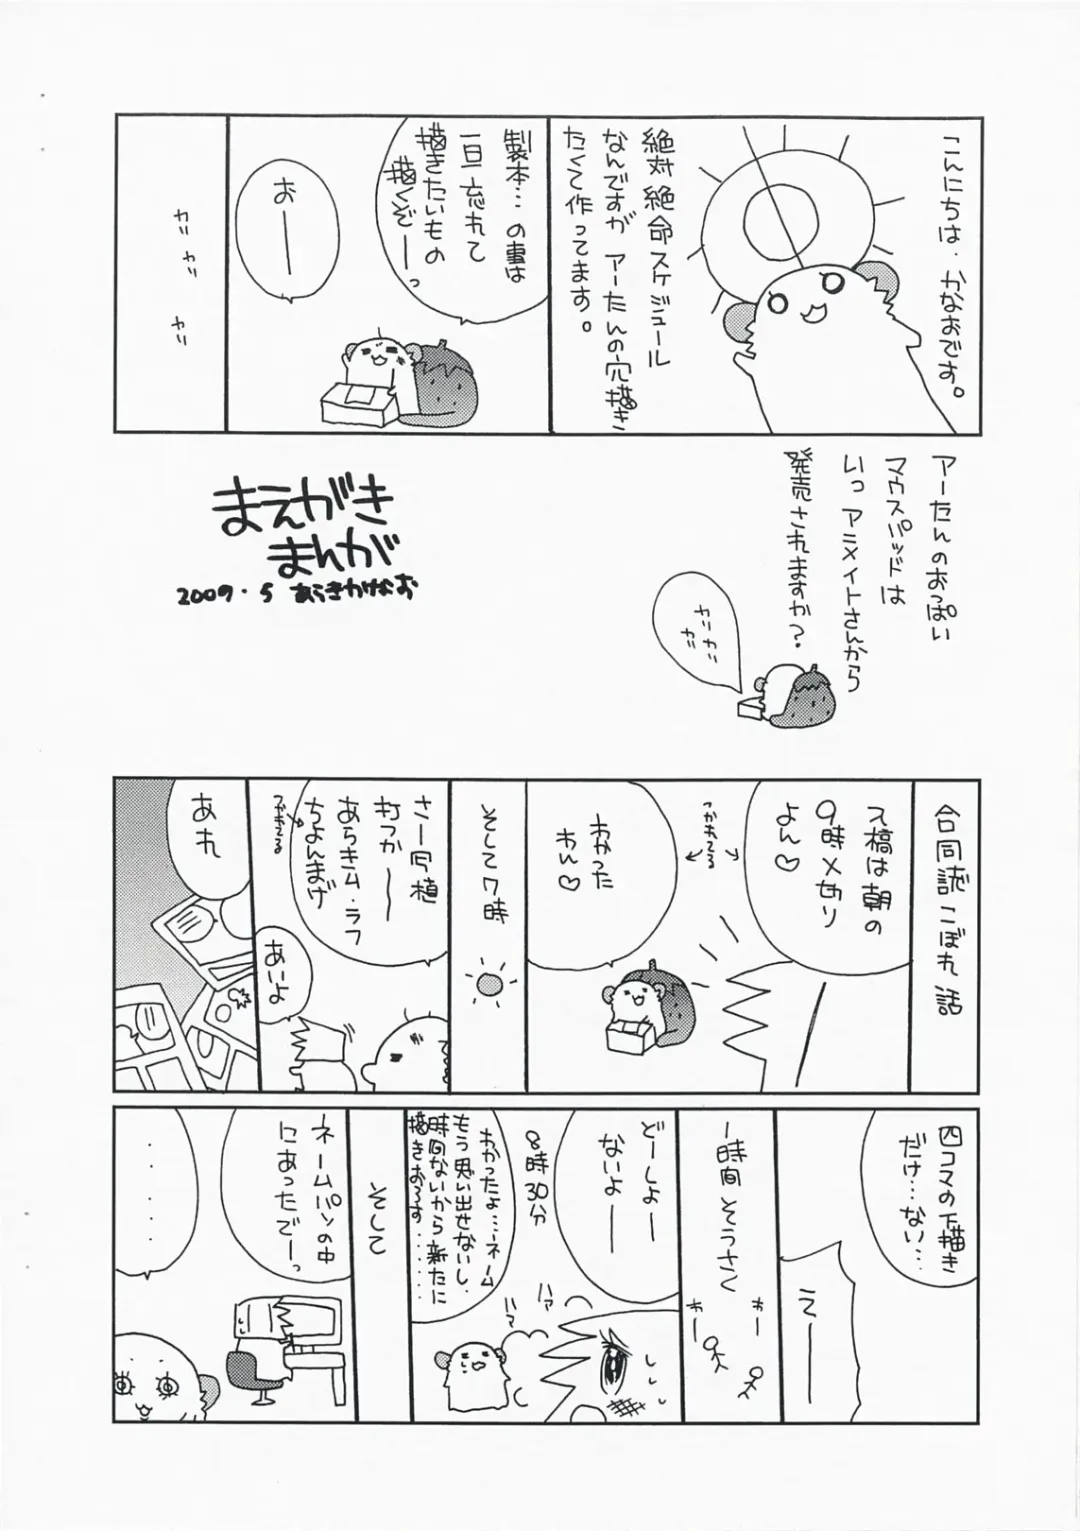 こんにちは、かなおです。
絶対絶命スケジュール
なんですが アーたんの穴描き
たくて作ってます。
製本…の事は
一旦忘れて
描きたいもの
描くぞーっ
おーー
カリ カリ
カリ
まえがき
まんが
2009.5 あらきかなお
アーたんのおっぱい
マウスパッドは
いつ アニメイトさんから
発売されますか?
カリカリ
カリ
合同誌こぼれ話
入稿は朝の
9時〆切り
よん♡
つかれてる
わかった
わん♡
そして7時
さー写植
打つかーー
あらきム・ラフ
ちょんまげ
つかれてる
あいよ
あれ
四コマの下描き
だけ…ない…
えーー
1時間 そうさく
わー
わー
どーしよー
ないよーー
ハァ
ハァ
8時30分
わかったよ…ネーム
もう思い出せないし、
時間ないから新たに
描きおろす……
そして
ネームパンの中
にあったでーっ
・・・・・